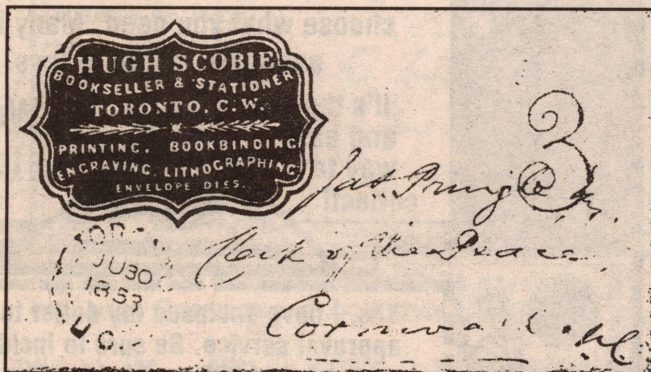 HUGH SCOBIE
BOOKSELLER & STATIONER
TORONTO, C.W.
PRINTING, BOOKBINDING
ENGRAVING, LITHOGRAPHING
ENVELOPE DIES.
3
Jas Pringle
Clerk of the Peace
Cornwall
JU 30
1853
U.C.